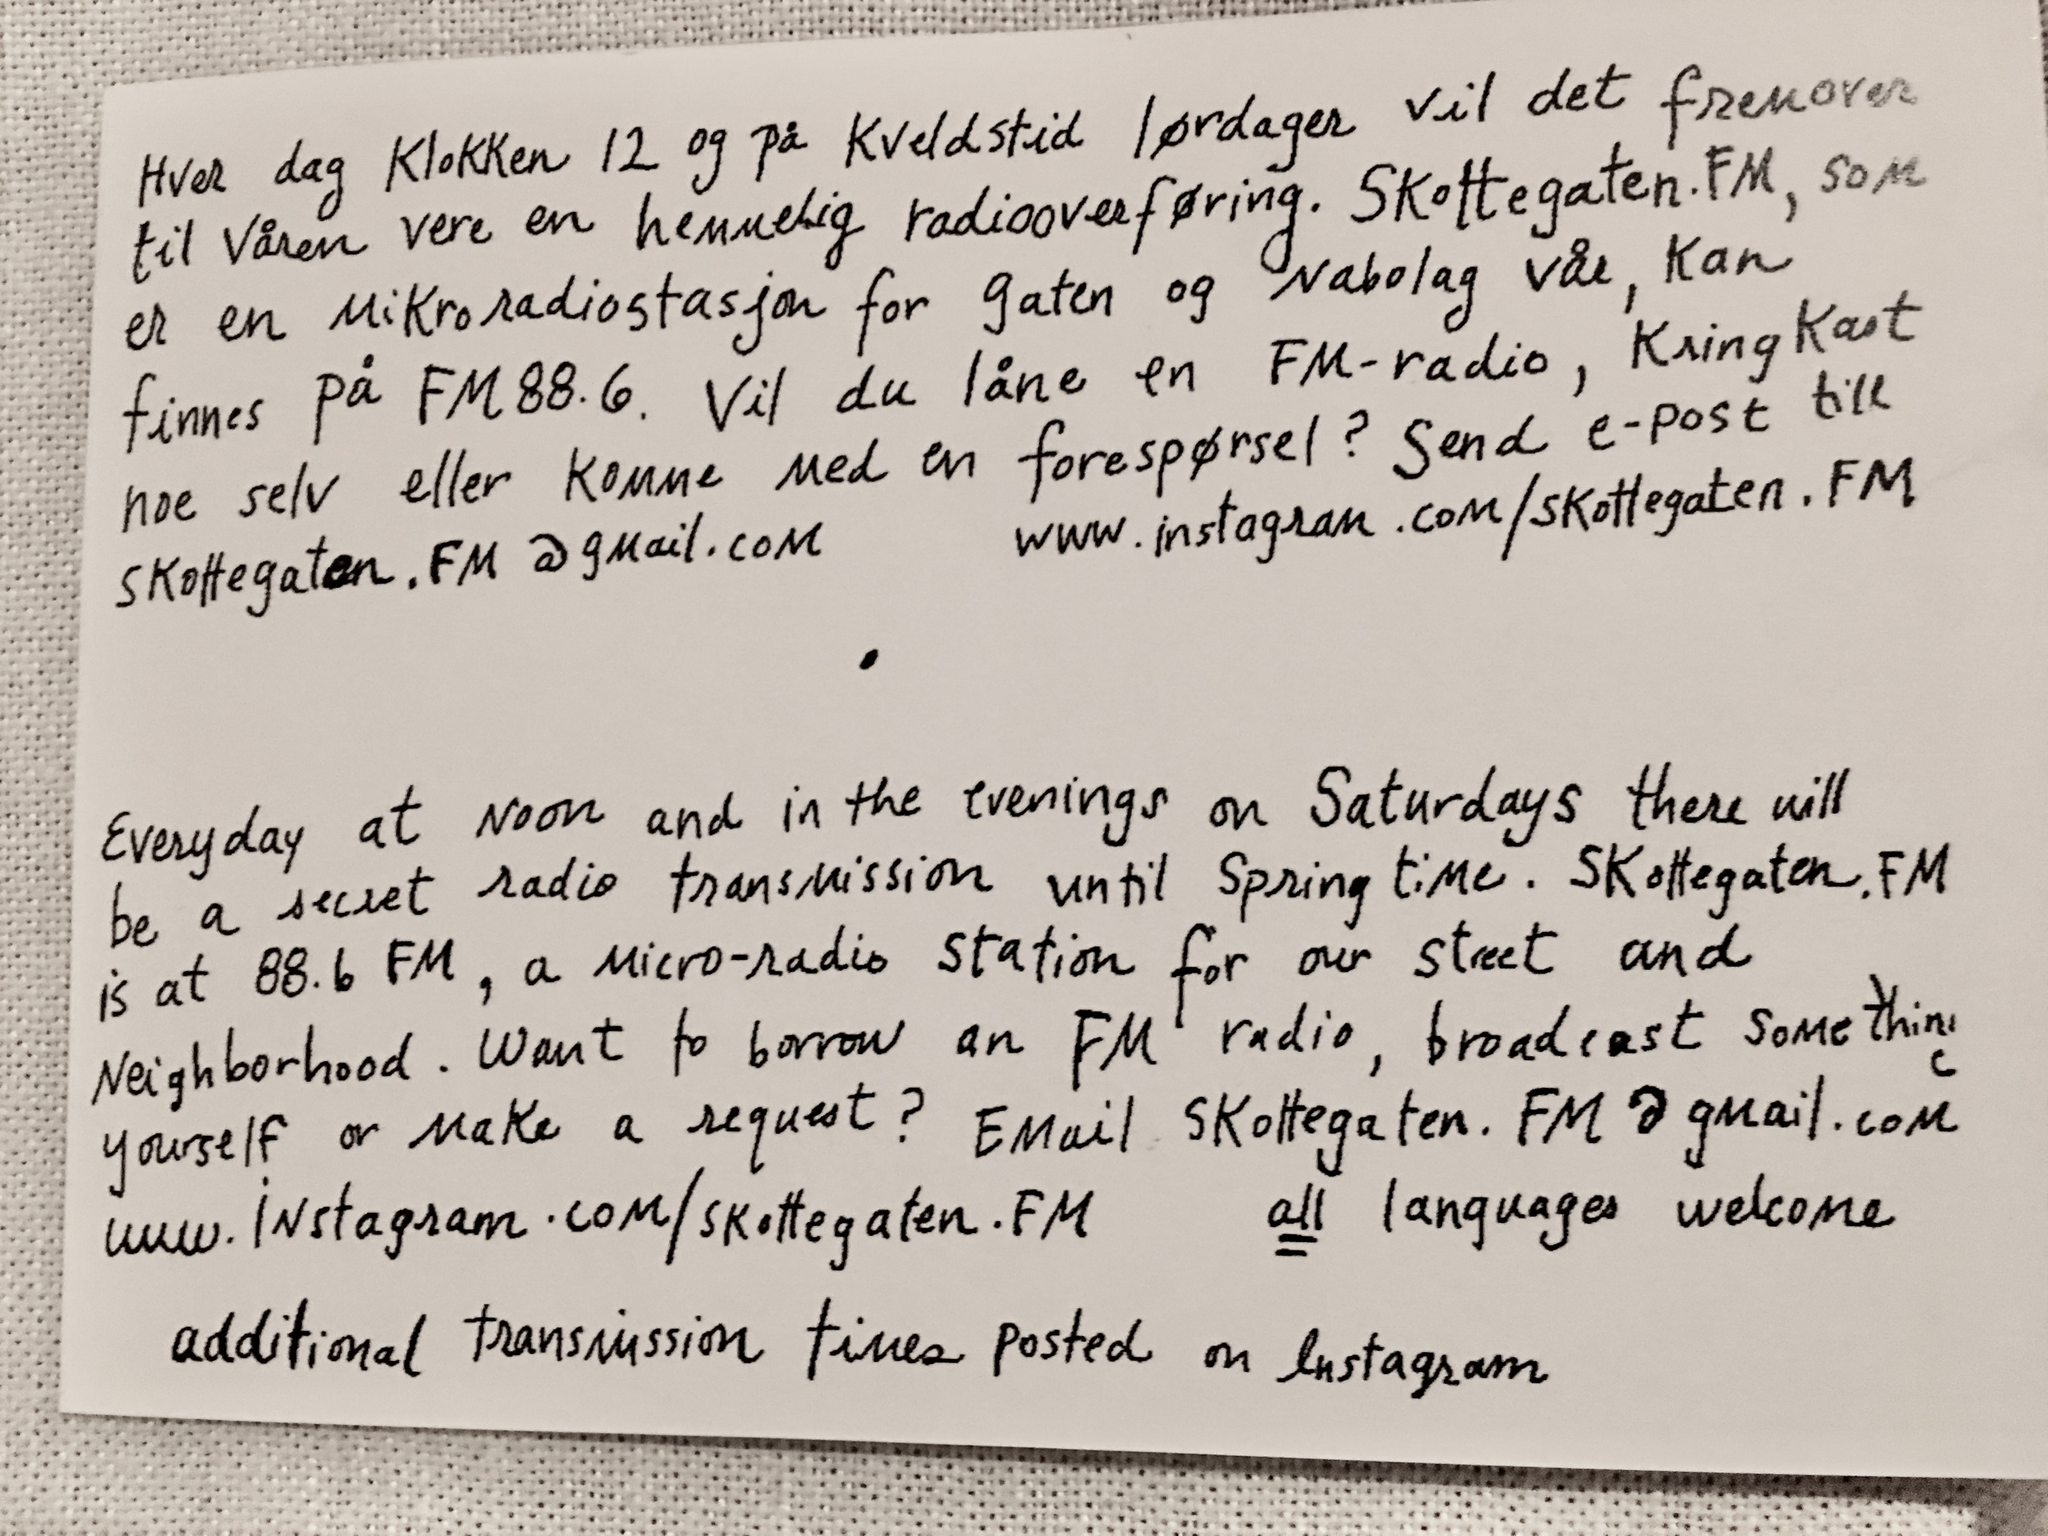 Hver dag Klokken 12 og på Kveldstid lørdager vil det fremover
til Våren vere en hemmelig radiooverføring. Skottegaten.FM, som
er en Mikroradiostasjon for gaten og Nabolag vår, Kan
finnes på FM 88.6. Vil du låne en FM-radio, Kringkast
noe selv eller Komme med en forespørsel? Send e-post till
Skottegaten.FM@gmail.com www.instagram.com/skottegaten.FM
Everyday at Noon and in the evenings on Saturdays there will
be a secret radio transmission until Springtime. Skottegaten.FM
is at 88.6 FM, a Micro-radio station for our street and
Neighborhood. Want to borrow an FM radio, broadcast something
yourself or Make a request? Email Skottegaten.FM@gmail.com
www.Instagram.com/skottegaten.FM all languages welcome
additional transmission times posted on Instagram